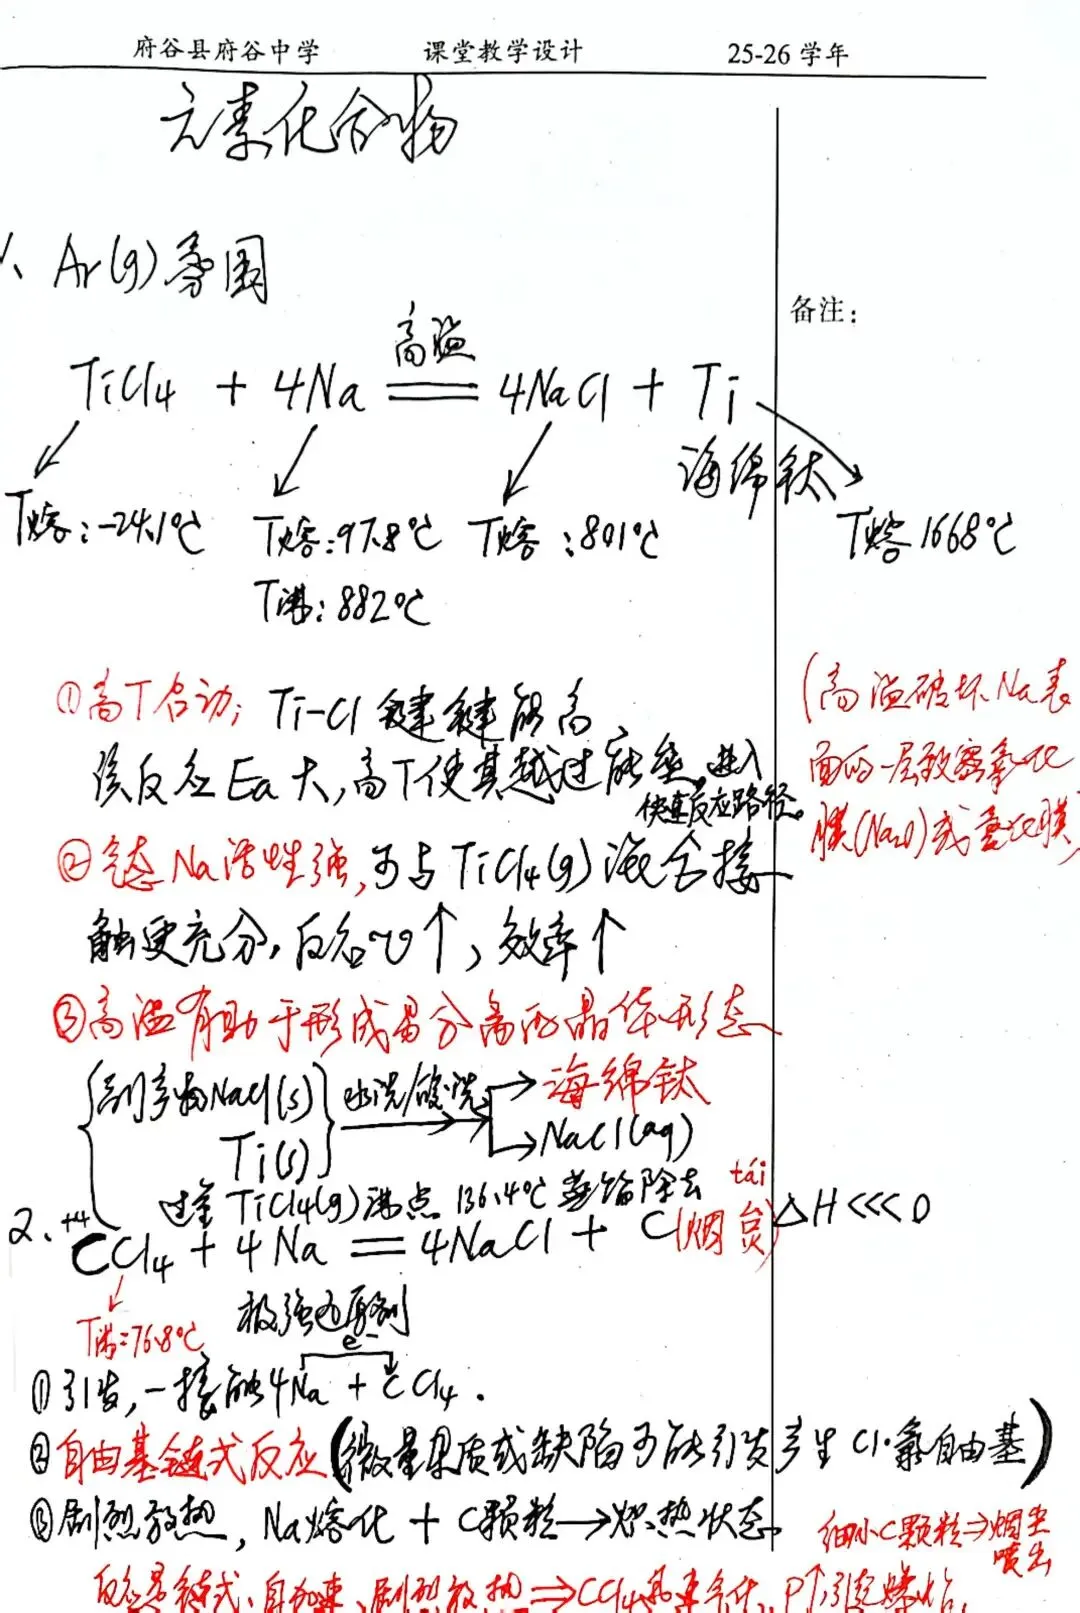 府谷县府谷中学 课堂教学设计 25-26 学年
元素化合物
备注:
1、Ar(g)氛围
高温
TiCl4 + 4Na == 4NaCl + Ti
海绵钛
T熔:-24.1℃ T熔:97.8℃ T熔:801℃ T熔1668℃
T沸:882℃
①高T启动; Ti-Cl 键键能高
该反应Ea大,高T使其越过能垒,进入
快速反应路径。
(高温破坏Na表
面的一层致密氧化
膜(Na2O)或氢化膜)
②气态Na活性强,可与TiCl4(g)混合接
触更充分,反应v↑,效率↑
③高温有助于形成易分离的晶体形态
{副产物NaCl(s) Ti(s)} 水洗/酸洗 → 海绵钛
→ NaCl(aq)
过量TiCl4(g)沸点 136.4℃ 蒸馏除去
tái
2、+4
CCl4 + 4Na = 4NaCl + C(烟炱) △H<<<0
T沸=76.8℃ 极强还原剂
e-
①引发,一接触4Na + CCl4.
②自由基链式反应(微量杂质或缺陷可能引发产生Cl·氯自由基)
③剧烈放热,Na熔化 + C颗粒→炽热状态。
细小C颗粒⇒烟尘
喷出
反应是链式、自加速、剧烈放热⇒CCl4迅速气化,P↑,引起爆炸.